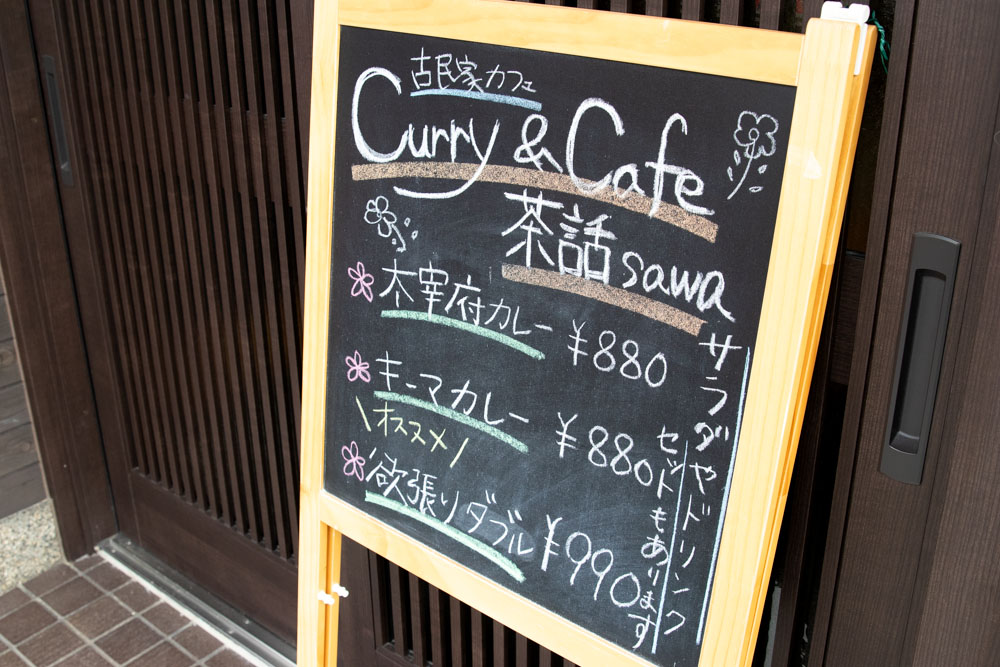 古民家カフェ
Curry & Cafe
茶話 sawa
太宰府カレー ¥880
キーマカレー ¥880
\オススメ/
欲張りダブル ¥990
サラダやドリンク
セットもあります